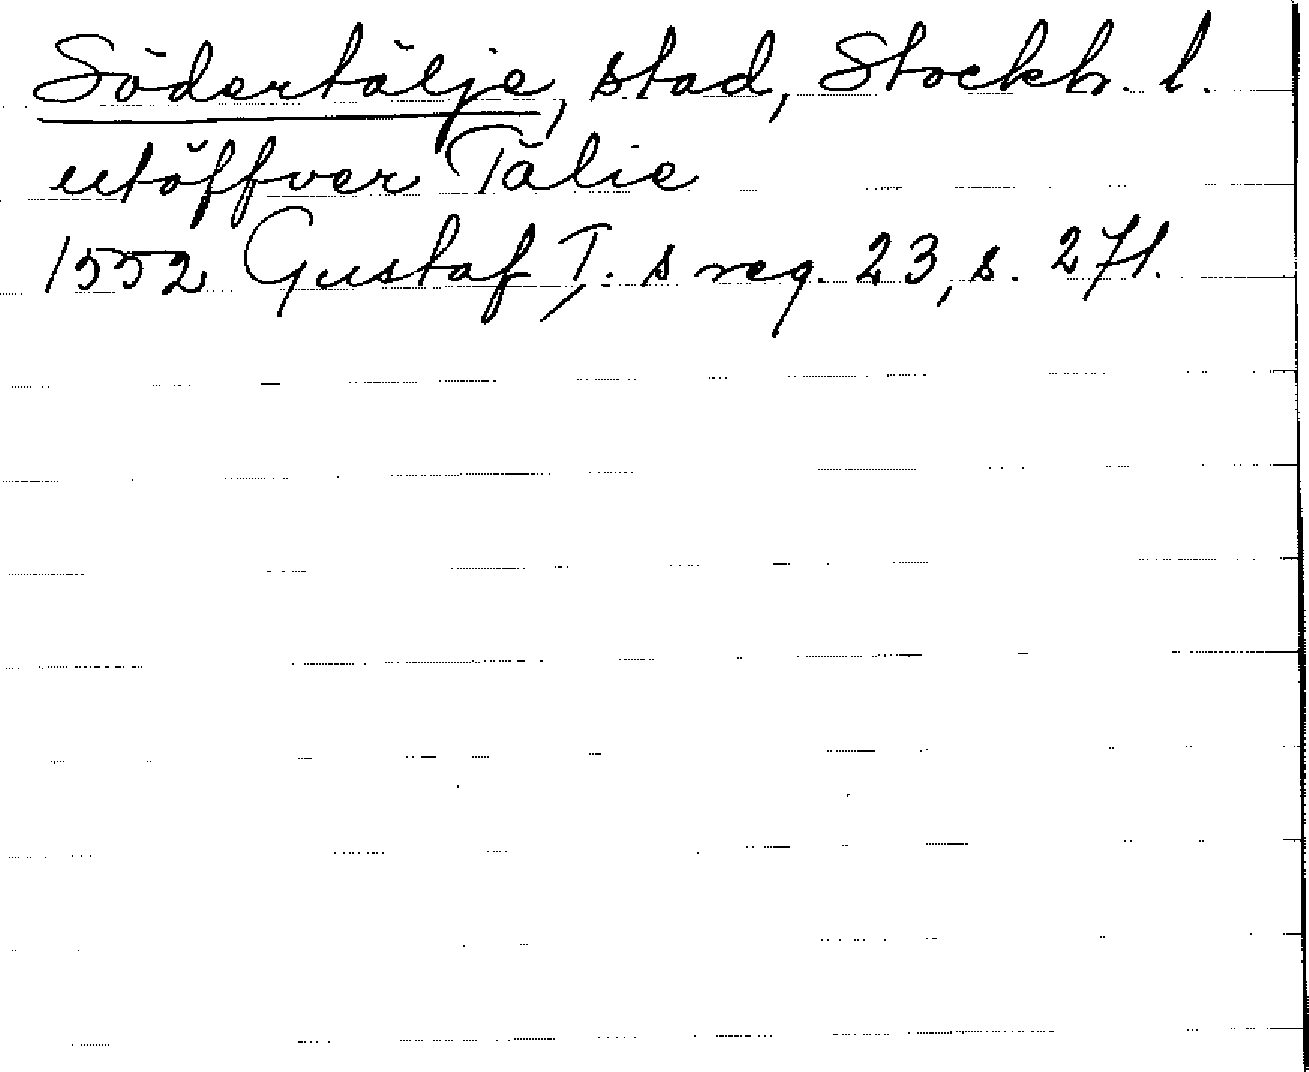 Södertälje, stad, Stockh. l.
utöffver Tälie
1552 Gustaf I: s reg. 23, s. 271.